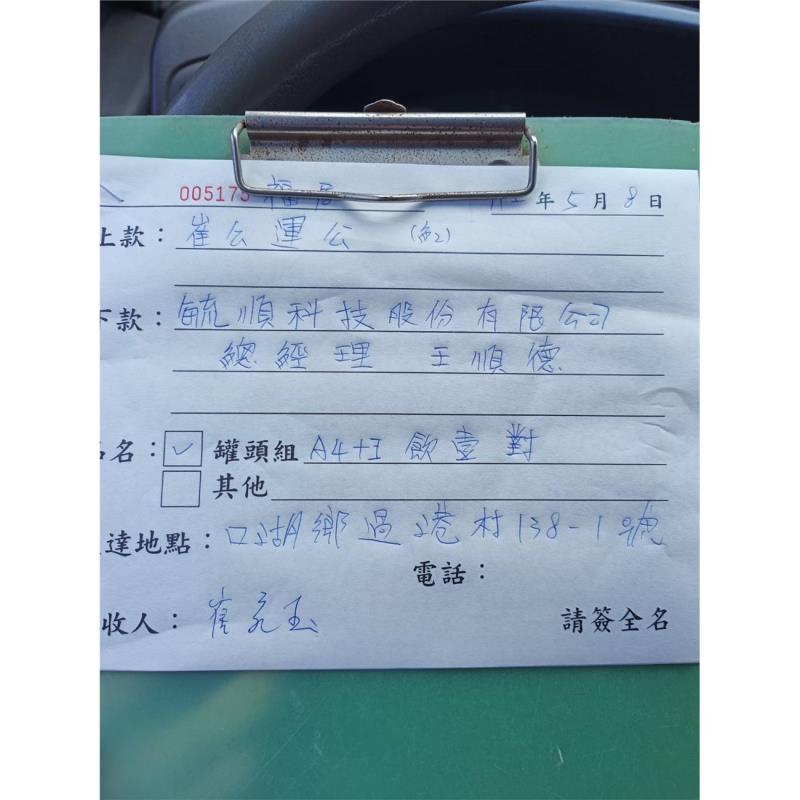 005175 福
年5月8日
上款：崔公運公 (紅)
下款：毓順科技股份有限公司
總經理 王順德
品名：✓ 罐頭組 A4+I 飲壹對
其他
送達地點：口湖鄉過港村138-1號
電話：
收人：崔 玉
請簽全名